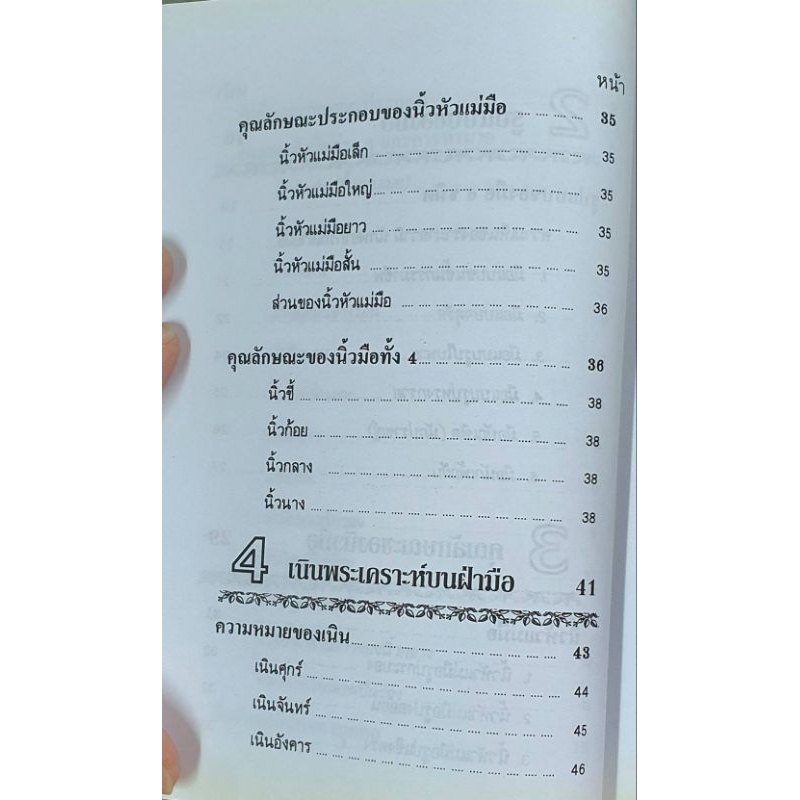 หน้า
คุณลักษณะประกอบของนิ้วหัวแม่มือ .... .... .... .... 35
นิ้วหัวแม่มือเล็ก .... .... .... .... .... .... .... .... .... .... 35
นิ้วหัวแม่มือใหญ่.... .... .... .... .... .... .... .... .... .... 35
นิ้วหัวแม่มือยาว .... .... .... .... .... .... .... .... .... .... 35
นิ้วหัวแม่มือสั้น .... .... .... .... .... .... .... .... .... .... 35
ส่วนของนิ้วหัวแม่มือ .... .... .... .... .... .... .... .... 36
คุณลักษณะของนิ้วมือทั้ง 4.... .... .... .... .... .... .... 36
นิ้วชี้ .... .... .... .... .... .... .... .... .... .... .... .... .... 38
นิ้วก้อย .... .... .... .... .... .... .... .... .... .... .... .... 38
นิ้วกลาง .... .... .... .... .... .... .... .... .... .... .... 38
นิ้วนาง .... .... .... .... .... .... .... .... .... .... .... .... 38
4 เนินพระเคราะห์บนฝ่ามือ 41
ความหมายของเนิน.... .... .... .... .... .... .... .... .... 43
เนินศุกร์ .... .... .... .... .... .... .... .... .... .... .... .... 44
เนินจันทร์ .... .... .... .... .... .... .... .... .... .... .... 45
เนินอังคาร .... .... .... .... .... .... .... .... .... .... .... 46